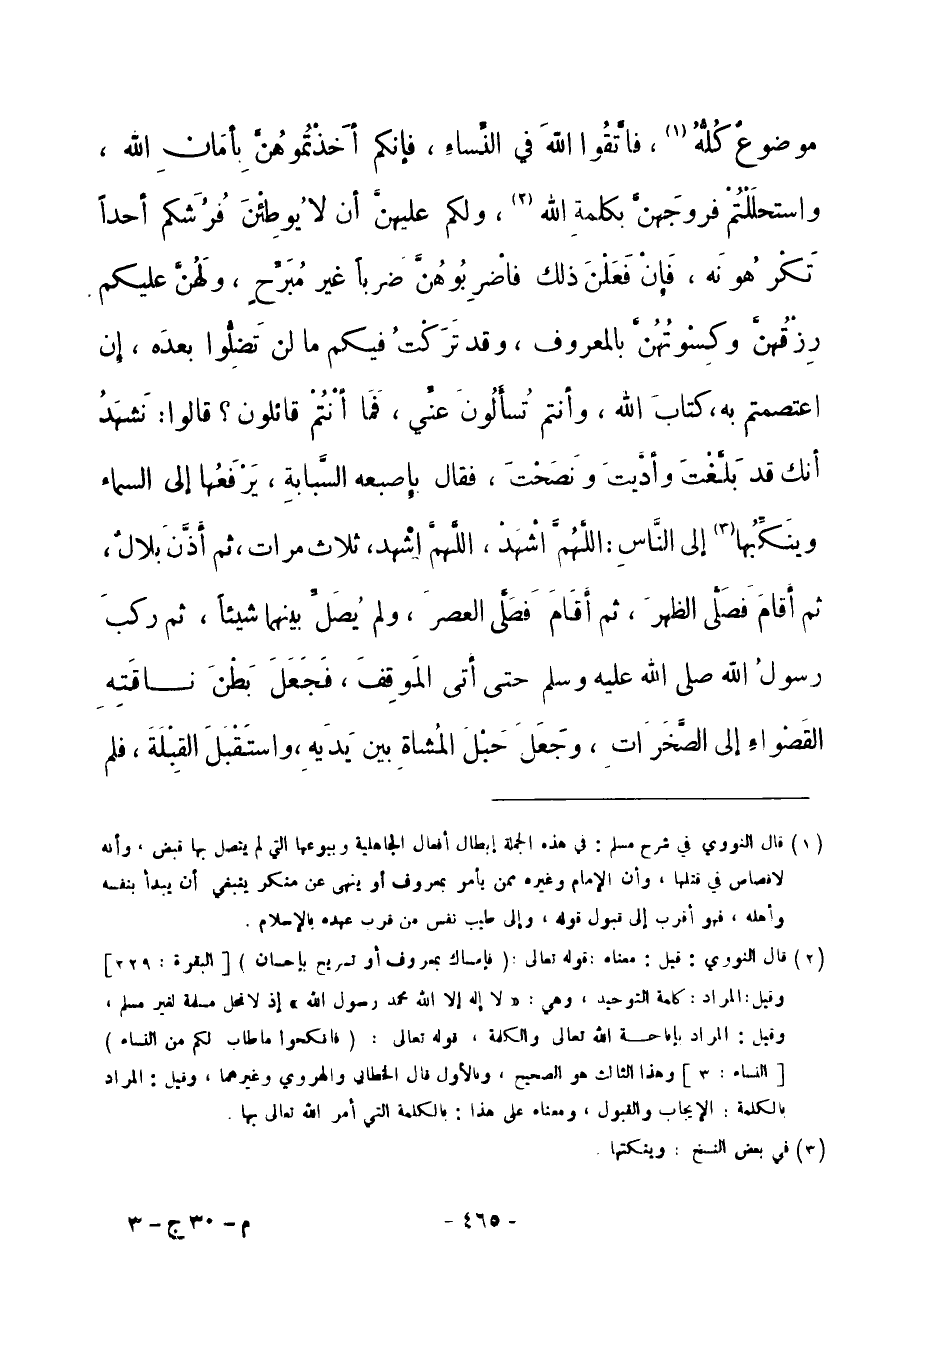 موضوعٌ كُلُّهُ (١) ، فاتَّقُوا اللهَ في النَّساءِ ، فإنكم أَخَذْتُموهُنَّ بِأمَانِ اللهِ ،
واستحلَلْتُمْ فروجَهنَّ بكلمةِ الله (٢) ، ولكم عليهنَّ أن لا يُوطِئْنَ فُرُشَكم أحداً
تَكْرَهُونَه ، فَإنْ فَعَلْنَ ذلك فاضرِبُوهُنَّ ضَرباً غير مُبَرِّحٍ ، ولَهُنَّ عليكم
رِزْقُهنَّ وكِسْوتُهُنَّ بالمعروف ، وقد تَرَكْتُ فيكم ما لن تَضِلُّوا بعدَه ، إن
اعتصمتم به، كتابَ الله ، وأنتم تُسأَلُونَ عنِّي ، فَمَا أَنْتُمْ قائلون ؟ قالوا: نَشهَدُ
أنك قد بَلَّغْتَ وأدَّيتَ ونَصَحْتَ ، فقال بإصبعه السَّبابةِ ، يَرْفَعُها إلى السماء
وينَكِّبُها (٣) إلى النَّاسِ : اللَّهُمَّ اشْهَدْ ، اللَّهمَّ اشْهد، ثلاث مرات، ثم أَذَّنَ بلالٌ ،
ثم أَقامَ فصَلَّى الظهرَ ، ثم أَقَامَ فَصَلَّى العصرَ ، ولم يُصَلِّ بينهما شيئاً ، ثم ركبَ
رسولُ الله صلى الله عليه وسلم حتى أَتى المَوقِفَ ، فَجَعَلَ بَطْنَ نـاقَتِهِ
القَصْواءِ إلى الصَّخَرَاتِ ، وجَعَلَ حَبْلَ المُشاةِ بين يَديهِ ، واستَقْبَلَ القِبْلَةَ ، فلم
(١) قال النووي في شرح مسلم : في هذه الجملة إبطال أفعال الجاهلية وبيوعها التي لم يتصل بها قبض ، وأنه
لاقصاص في قتلها ، وأن الإمام وغيره ممن يأمر بمعروف أو ينهى عن منكر ينبغي أن يبدأ بنفسه
وأهله ، فهو أقرب إلى قبول قوله ، وإلى طيب نفس من قرب عهده بالإسلام .
(٢) قال النووي : قيل : معناه : قوله تعالى : ( فإمساك بمعروف أو تسريح بإحسان ) [ البقرة : ٢٢٩ ]
وقيل: المراد : كلمة التوحيد ، وهي : « لا إله إلا الله محمد رسول الله » إذ لاتحل مسلمة لغير مسلم ،
وقيل : المراد بإباحـة الله تعالى والكلمة ، قوله تعالى : ( فانكحوا ماطاب لكم من النساء )
[ النساء : ٣ ] وهذا الثالث هو الصحيح ، وبالأول قال الخطابي والهروي وغيرهما ، وقيل : المراد
بالكلمة : الإيجاب والقبول ، ومعناه على هذا : بالكلمة التي أمر الله تعالى بها .
(٣) في بعض النسخ : وينكتها .
- ٤٦٥ -
م - ٣٠ ج - ٣